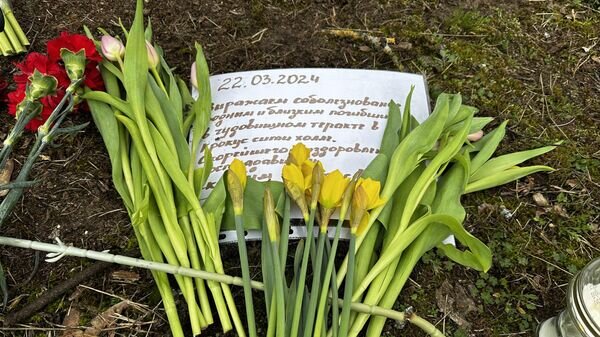 22.03.2024
Выражаем соболезнован
родным и близким погибших
в чудовищном теракте в
Крокус сити холл.
Скорейшего выздоровле